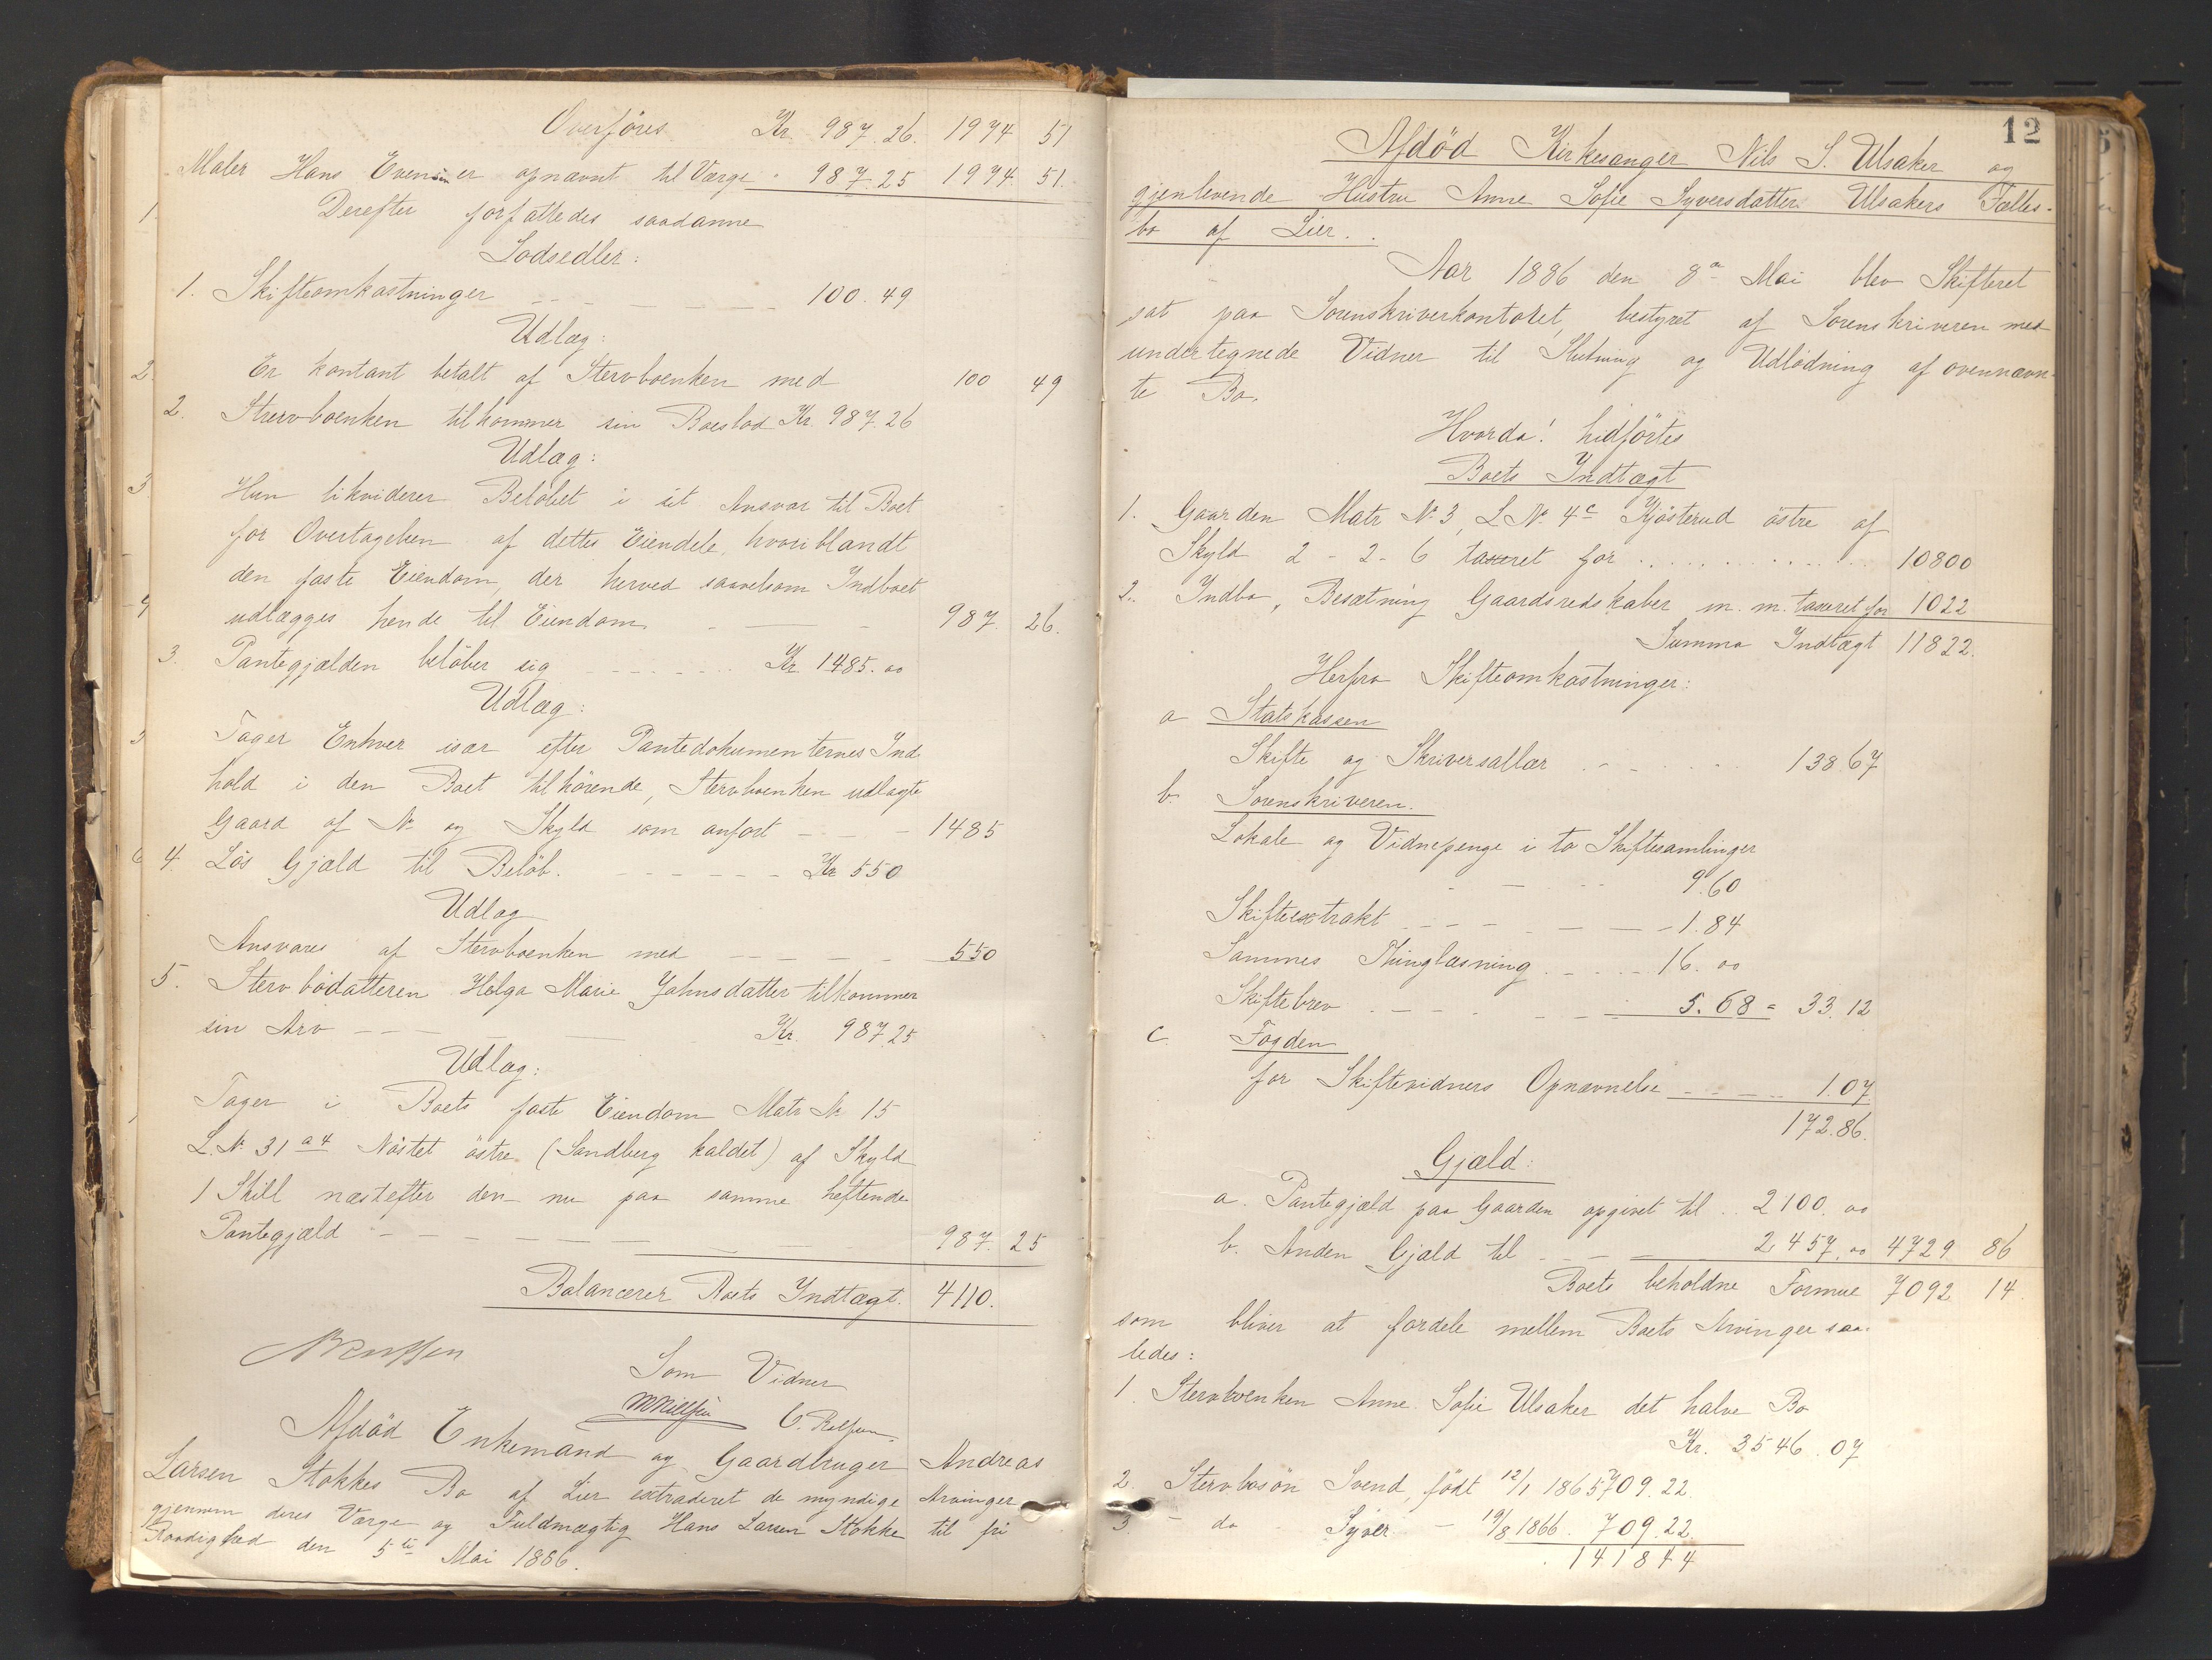 Overføres Kr. 987.26. 1974 51
Maler Hans Evensen er opnævnt til Værge " 987.25 1974. 51.
Derefter forfattedes saadanne
Lodsedler:
1. Skifteomkostninger 100.49
Udlæg:
Er kontant betalt af Stervboenken med 100 49
2. Stervboenken tilkommer sin Boeslod Kr. 987.26
Udlæg:
Hun likviderer Beløbet i sit Ansvar til Boet
for Overtagelsen af dettes Eiendele, hvoriblandt
den faste Eiendom, der herved saavelsom Indboet
udlægges hende til Eiendom 987. 26.
3. Pantegjælden beløber sig Kr. 1485.00
Udlæg:
Tager Enhver især efter Pantedokumenternes Ind-
hold i den Boet tilhørende, Stervboenken udlagte
Gaard af No og Skyld som anført 1485
4. Løs Gjæld til Beløb. Kr 550
Udlæg
Ansvares af Stervboenken med 550
5. Stervbodatteren Helga Marie Johnsdatter tilkommer
sin Arv Kr. 987.25
Udlæg:
Tager i Boets faste Eiendom Matr No 15
L. No 31 a4 Nøstet østre (Sandberg kaldet) af Skyld
1 Skill næstefter den nu paa samme heftende
Pantegjæld 987. 25
Balancerer Boets Indtægt. 4110.
Som Vidner
Afdød Enkemand og Gaardbruger Andreas
Larsen Stokkes Bo af Lier extraderet de myndige Arvinger
gjennem deres Værge og Fuldmægtig Hans Larsen Stokke til fri
Raadighed den 5te Mai 1886.
12
Afdød Kirkesanger Nils S. Ulsaker og
gjenlevende Hustru Anne Sofie Syversdatter Ulsakers Fælles-
bo af Lier.
Aar 1886 den 8de Mai blev Skifteret
sat paa Sorenskriverkontoret, bestyret af Sorenskriveren med
undertegnede Vidner til Slutning og Udlodning af ovennævn-
te Bo.
Hvorda! hidførtes
Boets Indtægt
1. Gaarden Matr No 3, L No 4c Kjøsterud østre af
Skyld 2 - 2 - 6 taxeret for 10800
2. Indbo, Besætning Gaardsredskaber m. m. taxeret for 1022
Summa Indtægt 11822.
Herfra Skifteomkostninger:
a Statskassen
Skifte og Skriversallær 138.67
b. Sorenskriveren.
Lokale og Vidnepenge i to Skiftesamlinger
9.60
Skifteextrakt 1.84
Sammes Thinglæsning 16.00
Skiftebrev 5.68 = 33.12
c. Fogden
for Skiftevidners Opnævnelse 1.07.
172.86.
Gjæld:
a. Pantegjæld paa Gaarden opgivet til 2100.00
b. Anden Gjæld til 2457.00 4729 86
Boets beholdne Formue 7092 14
som bliver at fordele mellem Boets Arvinger saa-
ledes:
1. Stervboenken Anne Sofie Ulsaker det halve Bo
Kr. 3546.07
2. Stervbosøn Svend, født 12/1 1865 709.22.
3. - do - Syver - 19/8 1866. 709.22.
1418 44